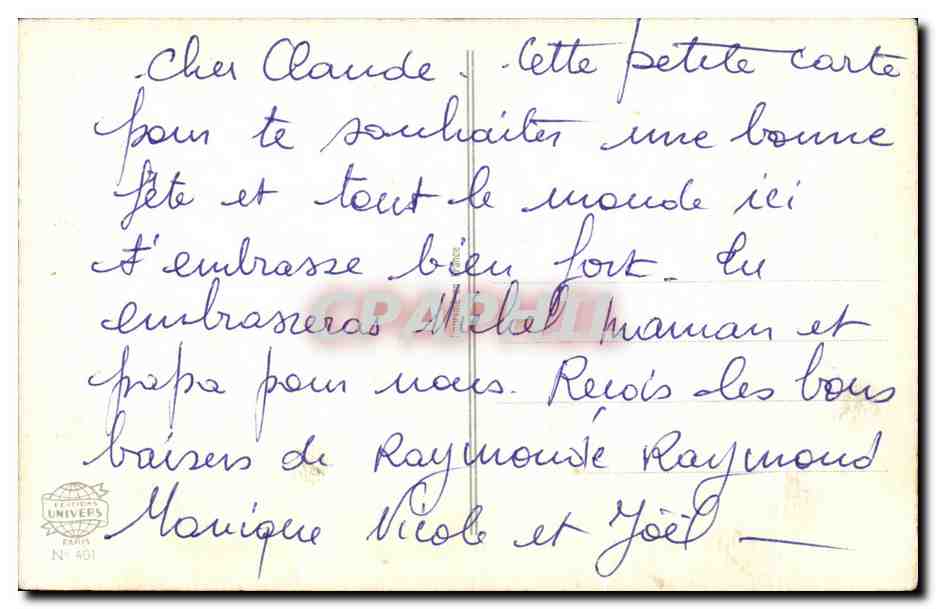 Cher Claude. Cette petite carte
pour te souhaiter une bonne
fête et tout le monde ici
t'embrasse bien fort. Tu
embrasseras Michel maman et
papa pour nous. Reçois les bons
baisers de Raymonde Raymond
Monique Nicole et Joël —
CPAPHIL
EDITIONS
UNIVERS
PARIS
N° 401